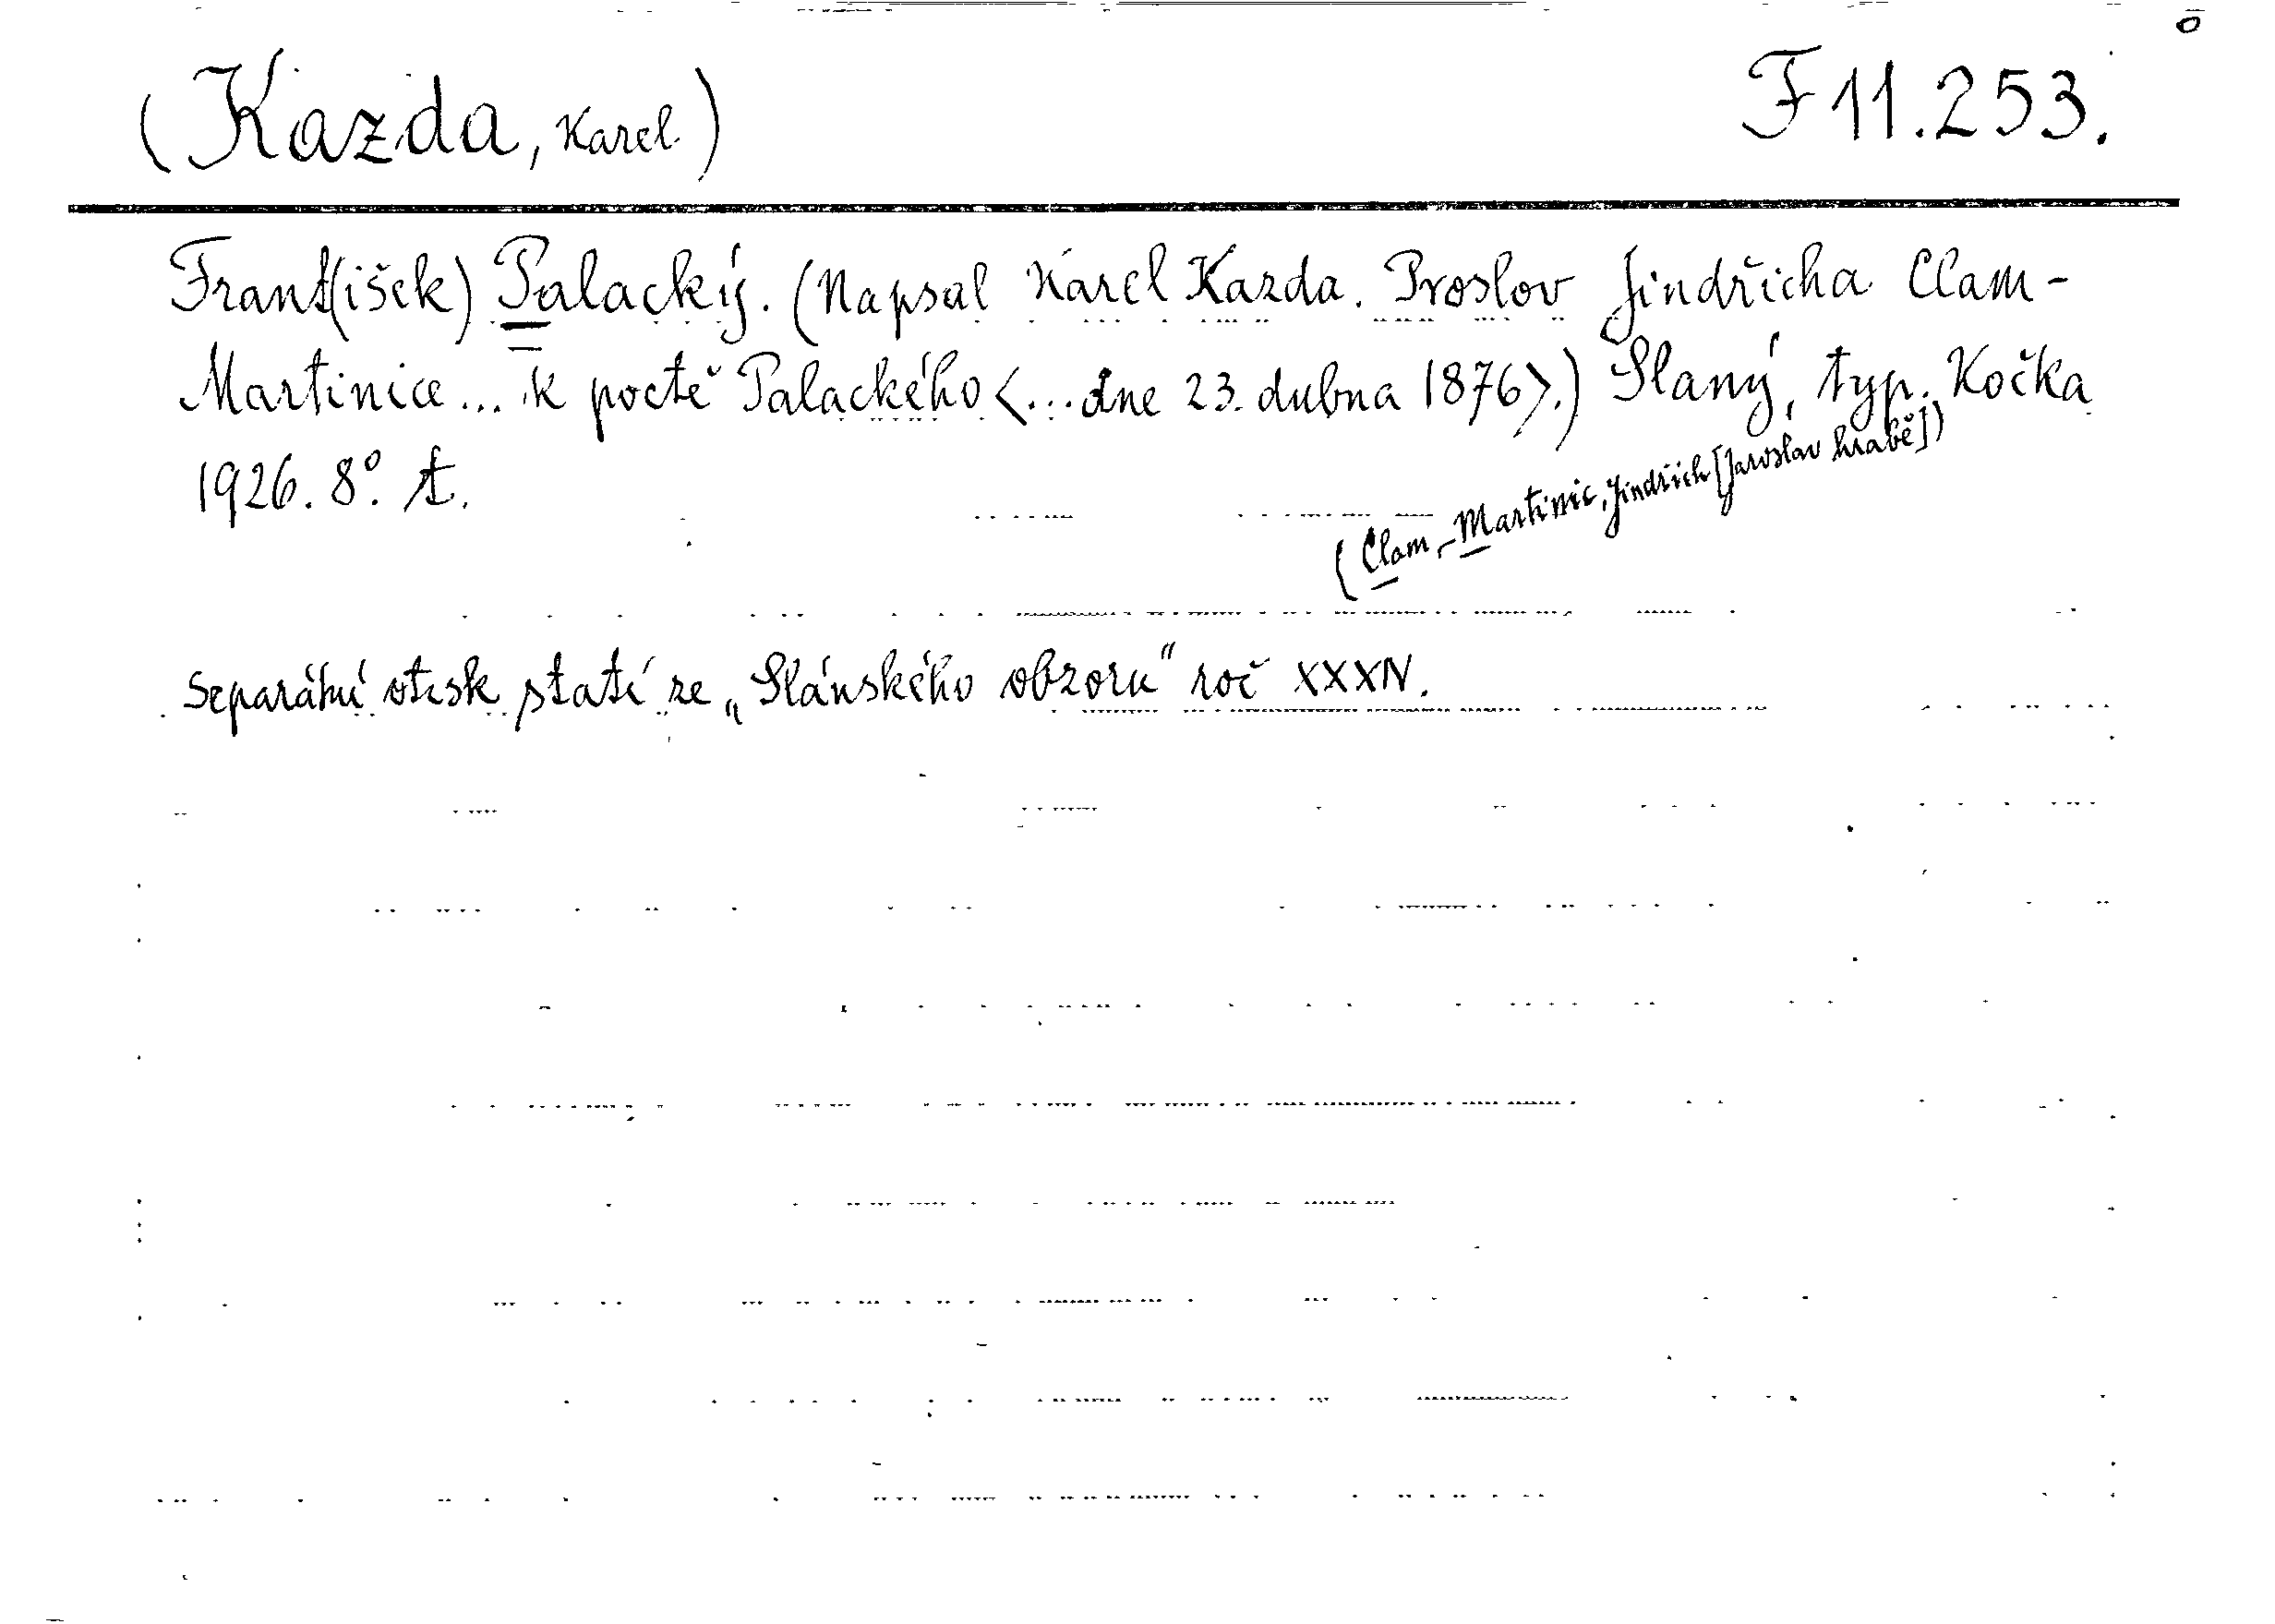 (Kazda, Karel) F 11.253.
Frant(išek) Palacký. (Napsal Karel Kazda. Proslov Jindřicha Clam-
Martinice... k poctě Palackého <...dne 23. dubna 1876>.) Slaný, typ. Kočka
1926. 8°.
(Clam-Martinic, Jindřich [Jaroslav hrabě])
Separátní otisk statí ze „Slánského obzoru" roč XXXIV.